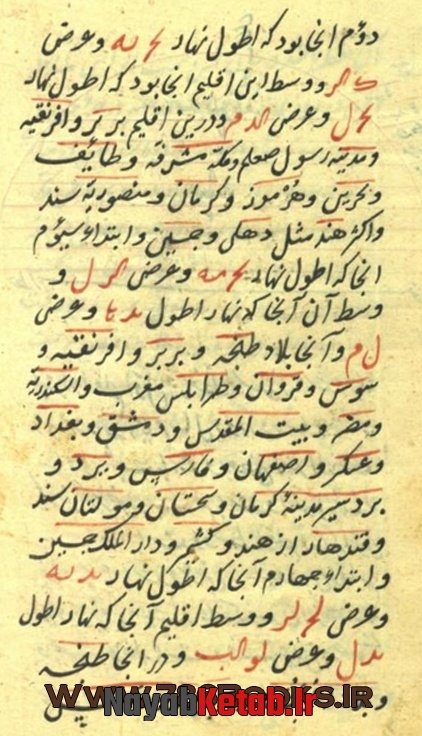 دوّم انجا بود که اطول نهار یح یه و عرض
ک و وسط این اقلیم انجا بود که اطول نهار
یح ل و عرض الدم و درین اقلیم بربر و افرنقیه
و مدینه رسول صعلم و مکه مشرفه و طائف
و بحرین و هرموز و کرمان و منصوریه سند
و اکثر هند مثل دهلی و چین و ابتداء سیوم
انجا که اطول نهار یح مه و عرض ل و
وسط آن آنجا که نهار اطول ید یا و عرض
ل م و آنجا بلاد طنجه و بربر و افرنقیه و
سوس و قروان و طرابلس مغرب و اسکندریه
و مصر و بیت المقدس و دمشق و بغداد
و عسکر و اصفهان و فارس و یزد و
بردسیر مدینهٔ کرمان و سجستان و مولتان سند
و قندهار از هند و کشمیر و دار الملک چین
و ابتداء چهارم آنجا که اطول نهار ید یه
و عرض لح لر و وسط اقلیم آنجا که نهار اطول
ید ل و عرض لو الب و در انجا طنجه
WWW.786Books.IR
NayabKetab.ir